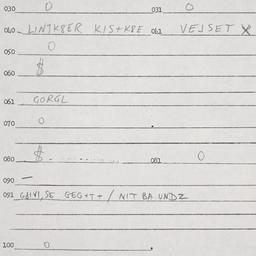 030 0 031 0
040 LINTK8ER KIS+K8E 061 VEJSET X
050 0
060 $
061 GORGL
070 0
080 $ 081 0
090 —
091 GEG+T+ / NIT BA UNDZ
100 0